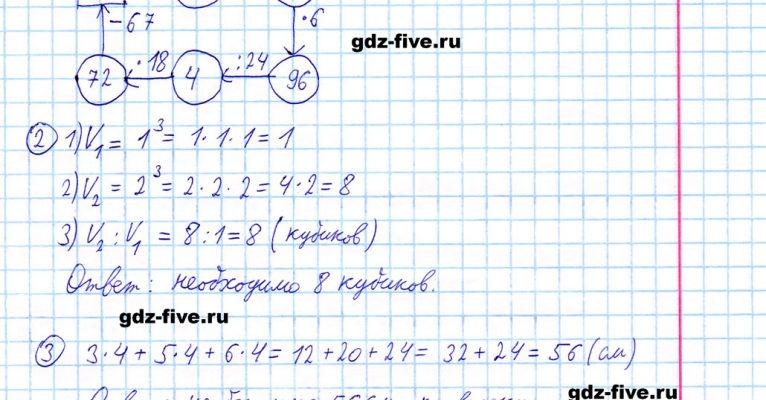 -67
·6
gdz-five.ru
72 ·18 4 :24 96
2 1) V₁ = 1³ = 1·1·1 = 1
2) V₂ = 2³ = 2·2·2 = 4·2 = 8
3) V₂ : V₁ = 8 : 1 = 8 (кубиков)
Ответ: необходимо 8 кубиков.
gdz-five.ru
3 3·4 + 5·4 + 6·4 = 12 + 20 + 24 = 32 + 24 = 56 (см)
gdz-five.ru